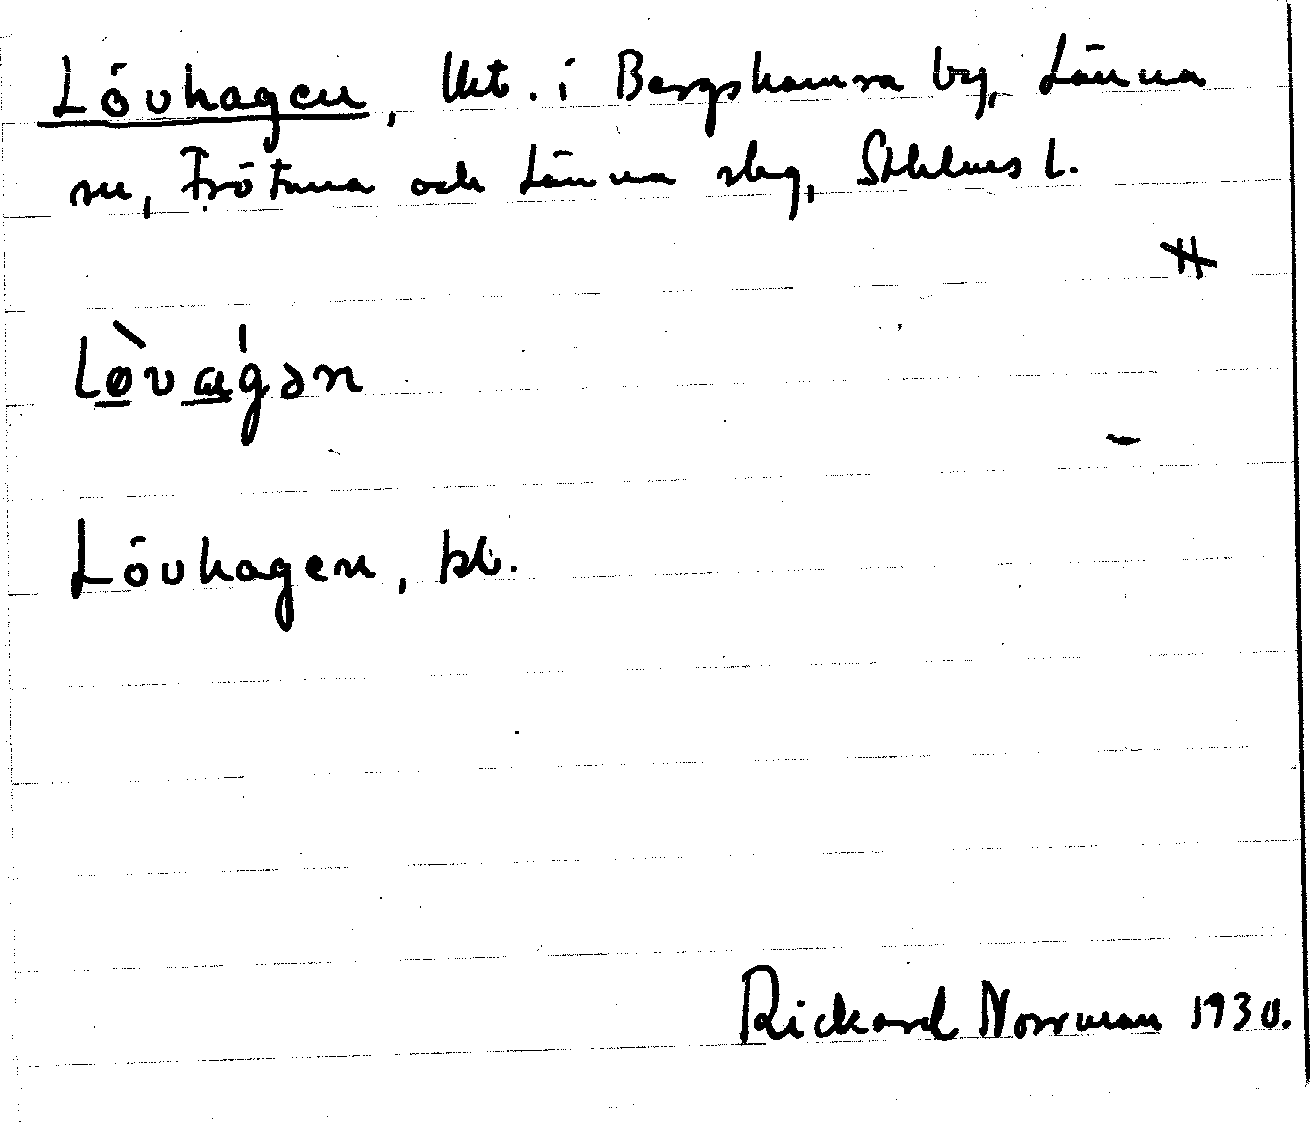 Lövhagen, lht. i Bergshamra by, Länna
sn, Frötuna och Länna skg, Sthlms l.
Lø̀vaǵən
Lövhagen, bl.
Rickard Norrman 1930.